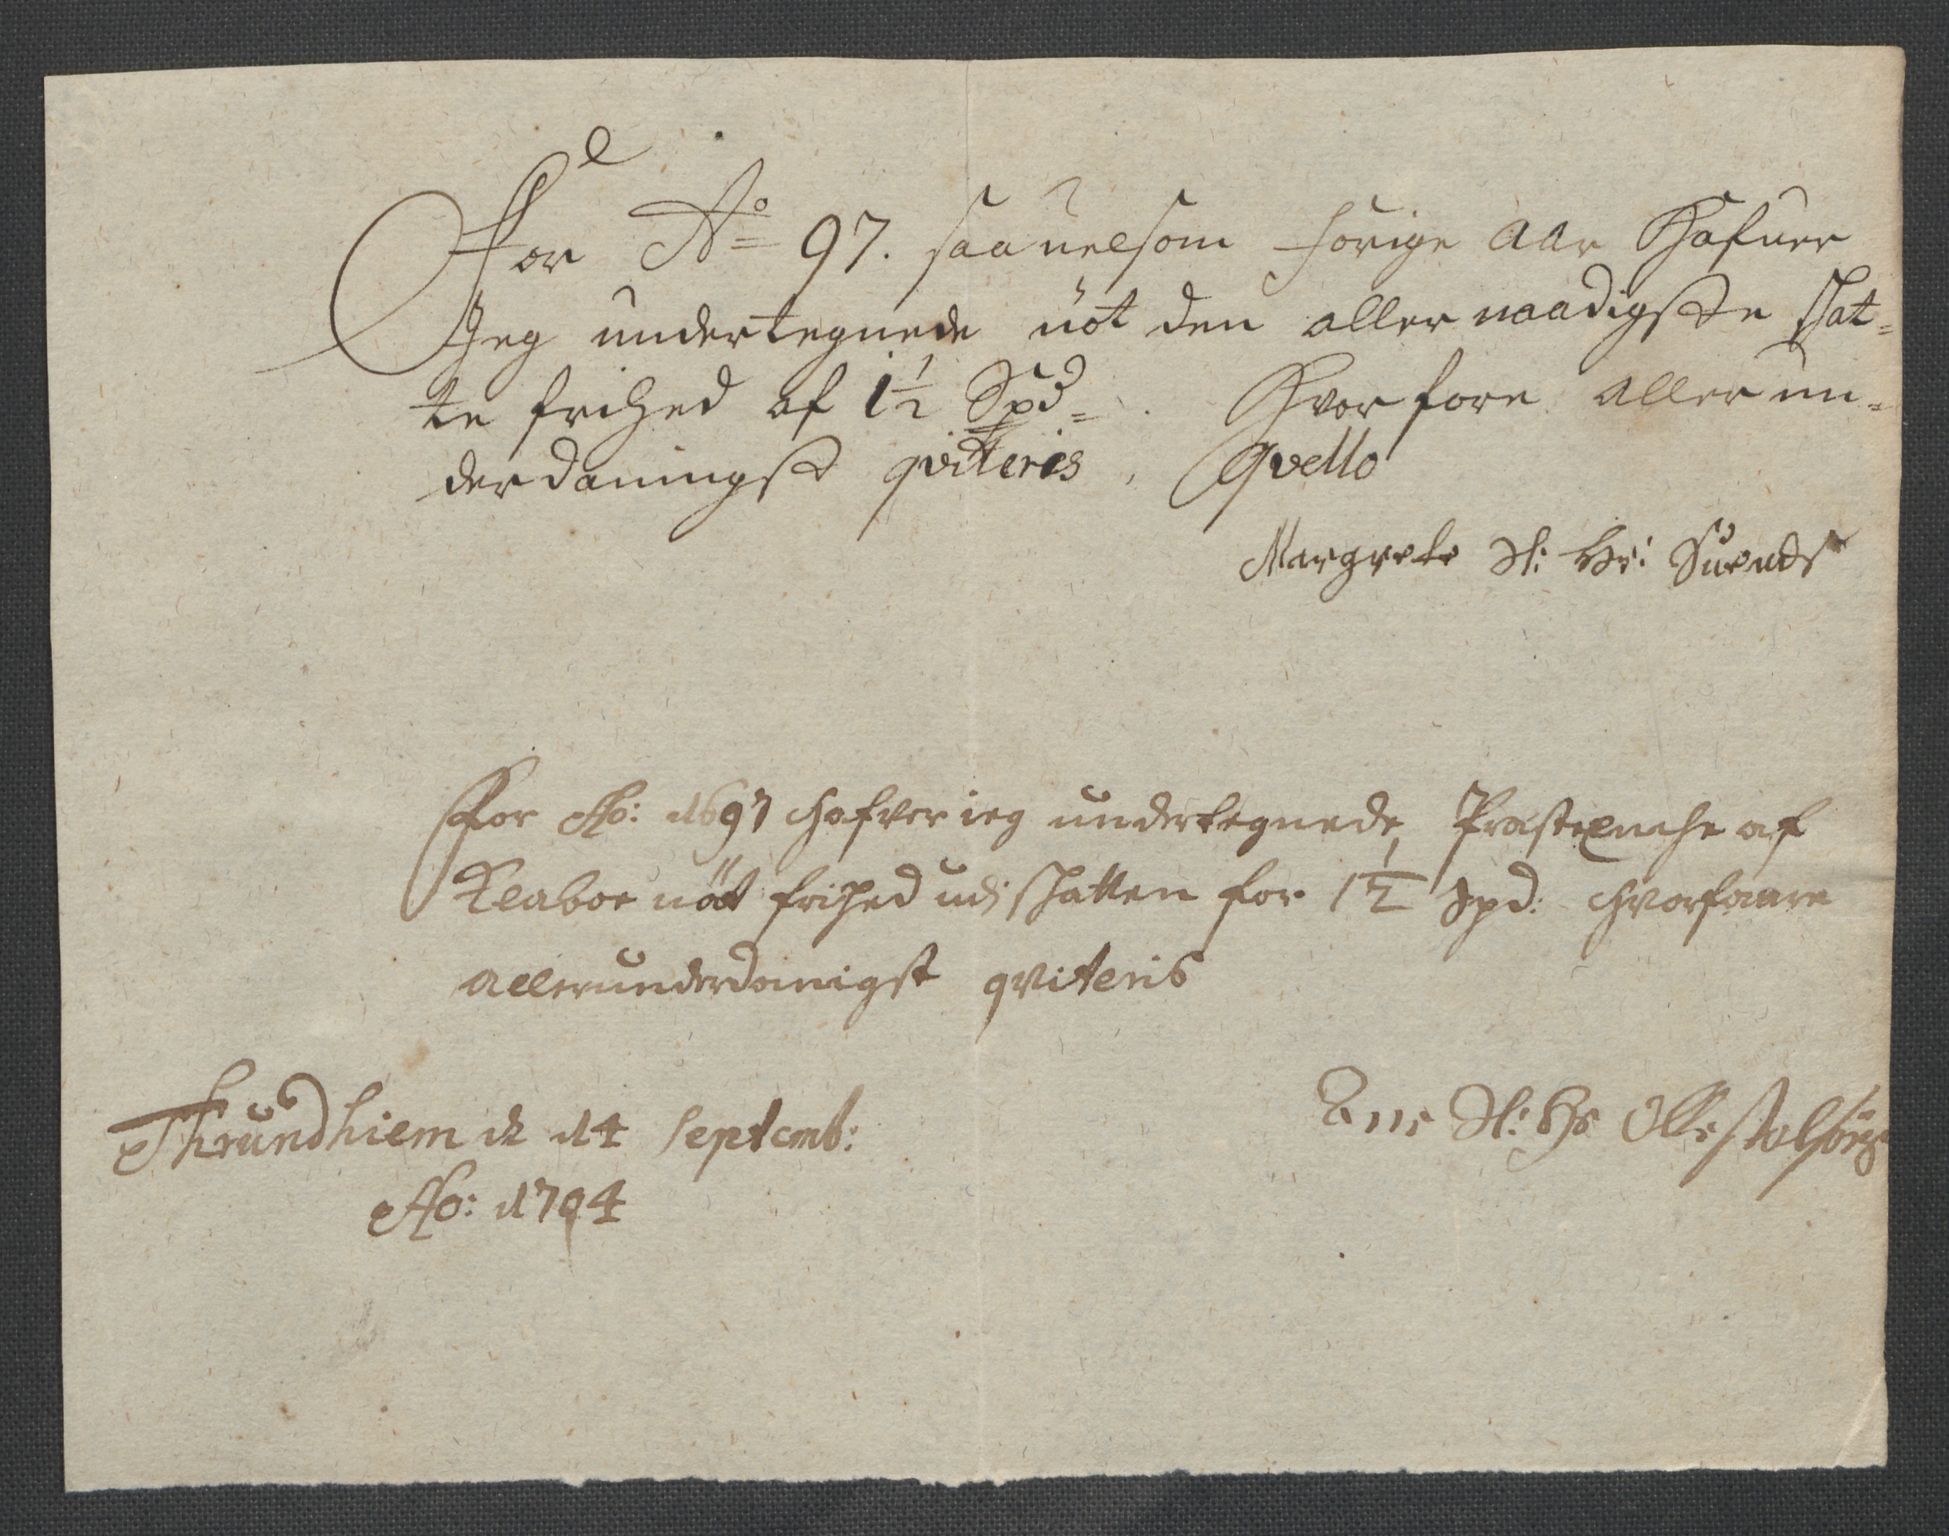 For Aº 97. saauelsom forige Aar Hafuer
Jeg undertegnede nöt den aller naadigste skat=
te frihed af 1½ Spd=. Hvorfore aller un=
derdaningst qviteris, Qvello
Margrete Sl: Hr: Suends
For Ao: 1697 hafver ieg undertegnede, Præstenche af
Klaboe nöt frihed udj skatten for 1½ Spd: hvorfaare
allerunderdanigst qviteris
Thrundhiem d 14 Septemb:
Ao: 1704
Ane Sl: Hr Olle